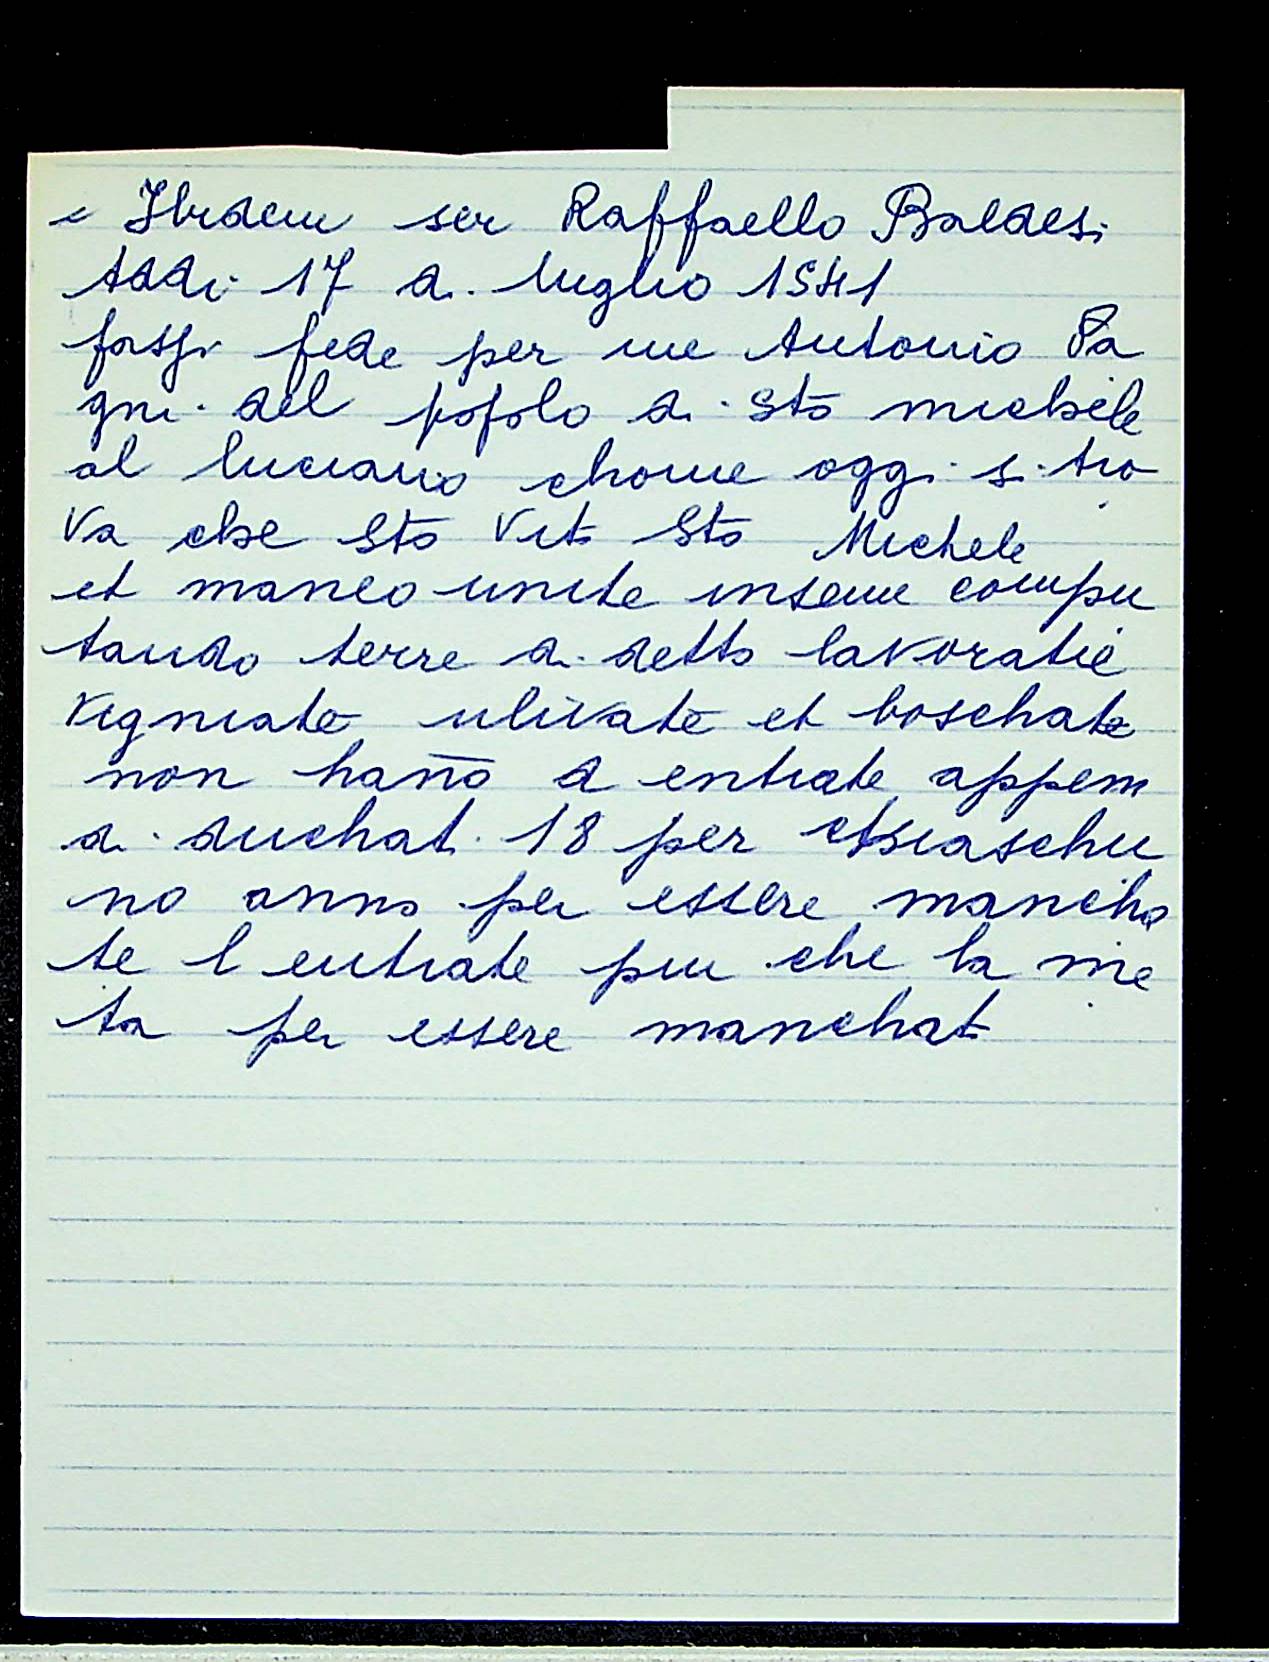 e Ibidem ser Raffaello Baldesi
Addi 17 di luglio 1541
fassi fede per me Antonio Pa
gni del popolo di Sto michele
al luciano chome oggi si tro
va che Sto Vito Sto Michele
et maneo unite inseme compu
tando terre di detto lavoratie
vigniate ulivate et boschate
non hano d entrate appem
di duchati 18 per chiaschu
no anno per essere mancha
te l entrate piu che la me
ta per essere manchat